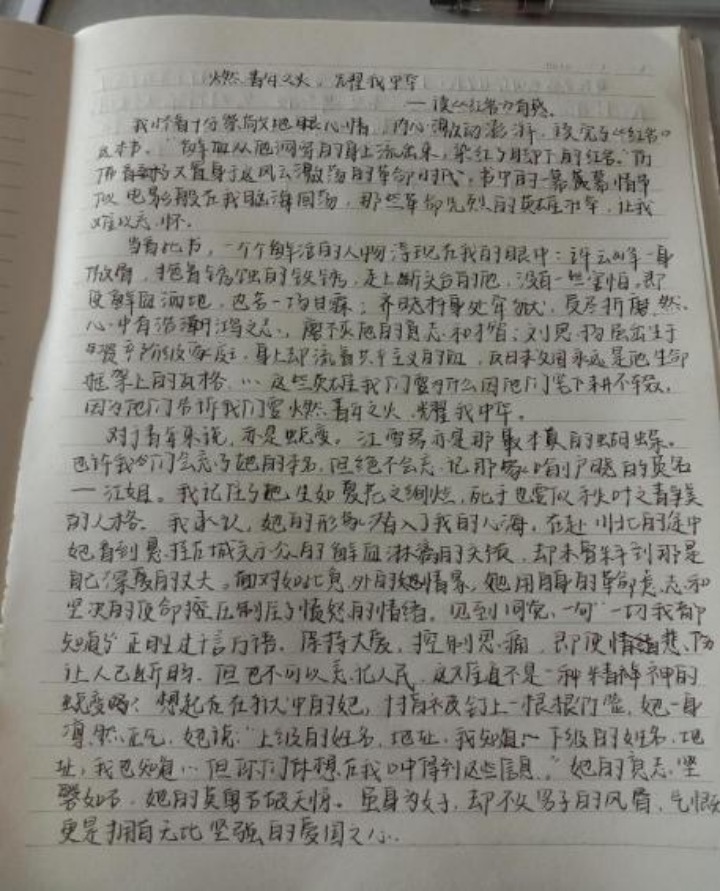 燃青年之火，耀我中华
——读《红岩》有感。
我怀着十分崇敬地心情，内心激动澎湃，读完了《红岩》
这本书。"鲜血从他网穿的身上流出来，染红了脚下的红岩。"仿
佛我又置身于这风云激荡的革命时代，书中的一幕幕情节
似电影般在我脑海回荡，那些革命先烈的英雄形象，让我
难以忘怀。
当看此书，一个个鲜活的人物浮现在我的眼中：许云峰一身
傲骨，拖着锈蚀的铁镣，走上断头台的他，没有一丝害怕，即
便鲜血洒地，也含一巧甘霖；齐晓轩身处牢狱，受尽折磨，然
心中有浩瀚鸿之志，磨不灭他的意志和；刘思扬虽出生于
资产阶级家庭，身上却流着共产主义的血，永远是他生命
框架上的风格……这些英雄我们要为什么因他们笔下耕不辍，
因为他们告诉我们要燃青年之火，耀我中华。
对于青年来说，亦是蜕变。江雪琴亦是那最本真的蝴蝶。
也许我们会忘了她的本名，但绝不会忘记那家喻户晓的英名
——江姐。我记住了她生如夏花之绚烂，死于也要似秋叶之静美
的人格。我承认，她的形象潜入了我的心海，在赴川北的途中
她看到悬挂在城头示众的鲜血淋漓的头颅，却未曾料到那是
自己深爱的丈夫。面对如此意外的情景，她用自身的革命意志和
坚决的使命控压制住了愤怒的情绪。见到同党，一句"一切我都
知道了"正胜过千言万语。保持大度，控制思痛，即便情绪悲伤
让人已断的，但也不可以忘记人民，这难道不是一种精神的
蜕变吗？想起在在狱中的她，十指被钉上一根根竹签，她一身
凛然正气，她说："上级的姓名、地址，我知道……下级的姓名、地
址，我也知道……但你们休想在我口中得到这些信息。"她的意志坚
磐如石，她的英勇石破天惊。虽身为女子，却不失男子的风骨，气慨
更是拥有无比坚强的爱国之心。